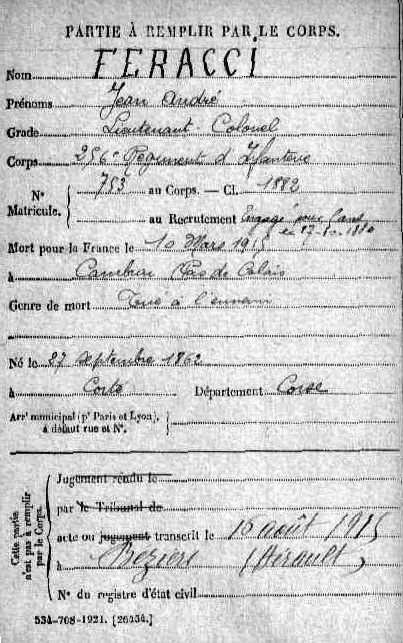 PARTIE À REMPLIR PAR LE CORPS.
Nom FERACCI
Prénoms Jean André
Grade Lieutenant-Colonel
Corps 256e Régiment d'Infanterie
N° Matricule. 753 au Corps. — Cl. 1882
au Recrutement Engagé pour 5 ans
Mort pour la France le 10 Mars 1915
à Cambrin Pas de Calais
Genre de mort Tué à l'ennemi
Né le 27 Septembre 1862
à Corte Département Corse
Arrt municipal (pr Paris et Lyon),
à défaut rue et N°.
Cette partie n'est pas à remplir par le Corps.
Jugement rendu le
par le Tribunal de
acte ou jugement transcrit le 16 août 1915
à Béziers (Hérault)
N° du registre d'état civil
534-708-1921. [26434.]